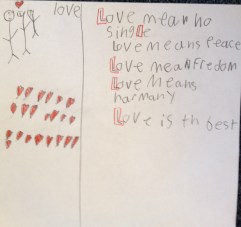 love
Love mean no
single
Love means peace
Love mean freedom
Love Means
harmany
Love is th best